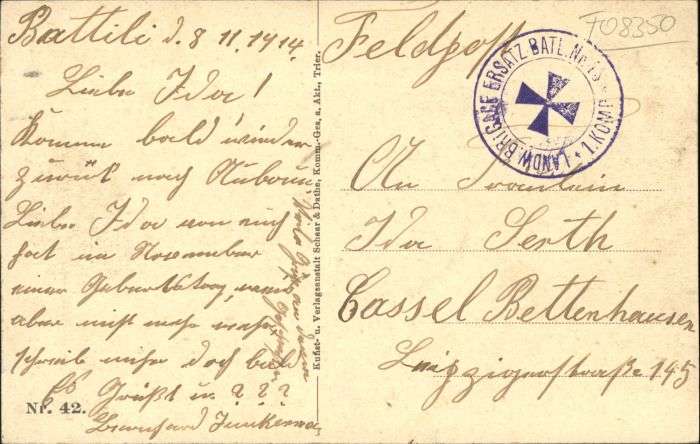 Battili d. 8 11. 1914.
Liebe Ida!
Komme bald wieder
zurück nach
Liebe Ida von euch
hat im November
einer Geburtstag,
aber nicht mehr
schreib mir doch bald
Es Grüßt u. ? ? ?
Bernhard
Nr. 42.
Kunst- u. Verlagsanstalt Schaar & Dathe, Komm.-Ges. a. Akt., Trier.
Feldpost
F08350
LANDW. BRIGADE ERSATZ BATL. Nr.
1. KOMP.
An Fräulein
Ida Serth
Cassel Bettenhausen
Leipzigerstraße 145